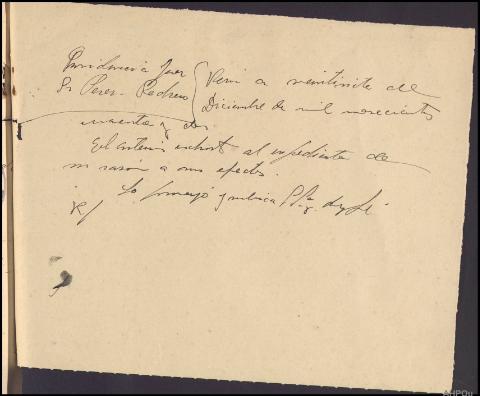 Providencia Juez
Sr Perez-Pedrero
a veintisiete de
Diciembre de mil novecientos
cuarenta y dos
El anterior exhorto al expediente de
su razón a sus efectos.
Lo y rubrica S Sª doy fé
AHPOu